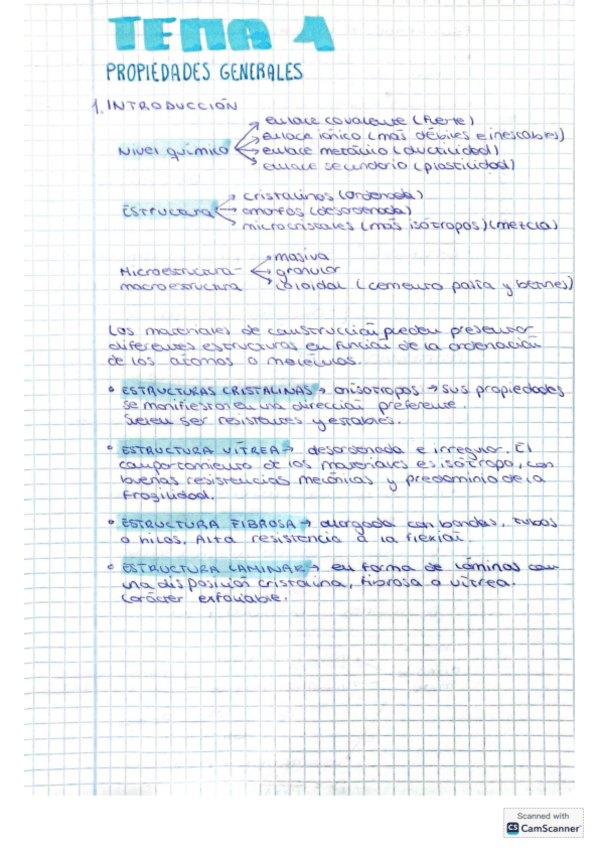 TEMA 1
PROPIEDADES GENERALES
1. INTRODUCCIÓN
Nivel químico
enlace covalente (fuerte)
enlace iónico (más débiles e inestables)
enlace metálico (ductilidad)
enlace secundario (plasticidad)
Estructura
cristalinos (ordenada)
amorfos (desordenada)
microcristales (más isótropos) (mezcla)
Microestructura-
macroestructura
masiva
granular
coloidal (cemento pasta y betunes)
Los materiales de construcción pueden presentar
diferentes estructuras en función de la ordenación
de los átomos o moléculas.
• ESTRUCTURAS CRISTALINAS → anisótropos → sus propiedades
se manifiestan en una dirección preferente.
Suelen ser resistentes y estables.
• ESTRUCTURA VÍTREA → desordenada e irregular. El
comportamiento de los materiales es isótropo, con
buenas resistencias mecánicas y predominio de la
fragilidad.
• ESTRUCTURA FIBROSA → alargada con bandas, tubos
o hilos. Alta resistencia a la flexión.
• ESTRUCTURA LAMINAR → en forma de láminas con
una disposición cristalina, fibrosa o vítrea.
Carácter exfoliable.
Scanned with
CS CamScanner